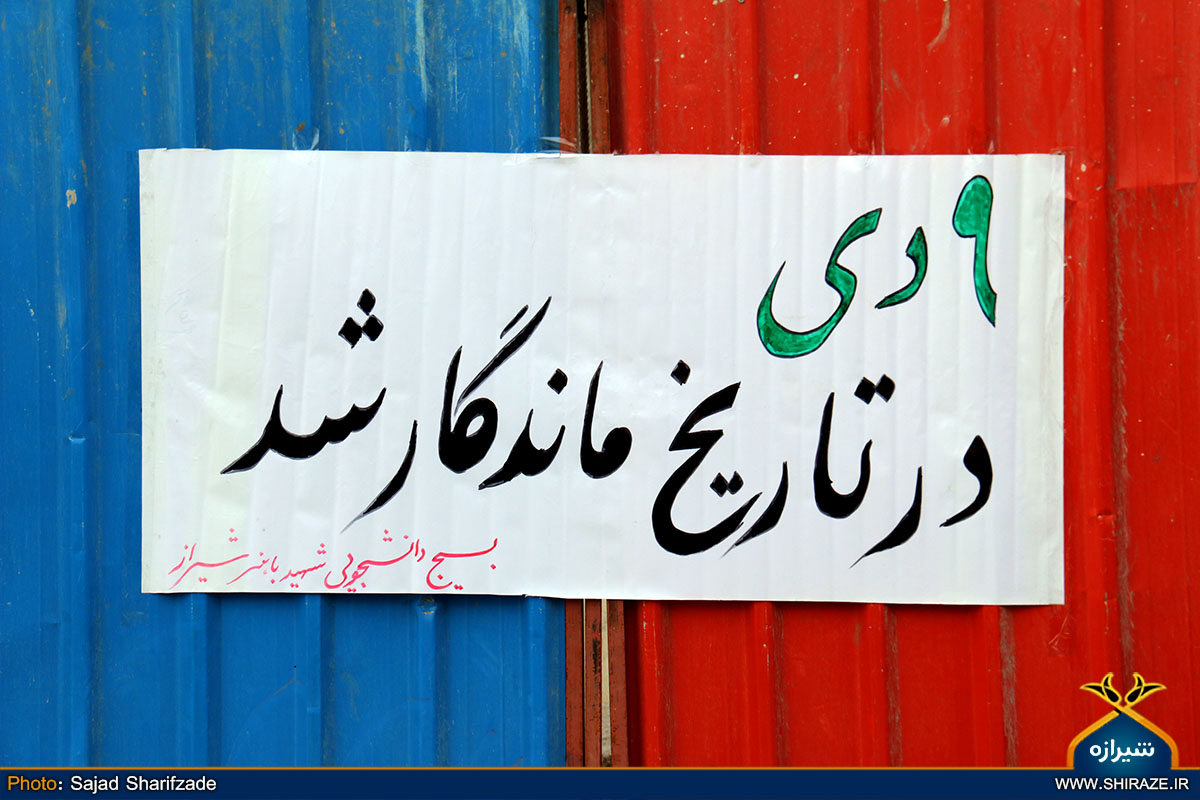 ۹ دی
در تاریخ ماندگار شد
بسیج دانشجویی شهید باهنر شیراز
شیرازه
Photo: Sajad Sharifzade
WWW.SHIRAZE.IR